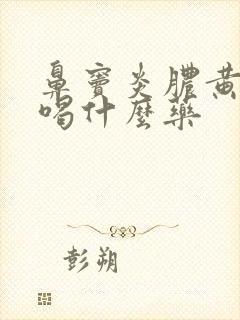 鼻窦炎膿黃
喝什麼藥
彭朔